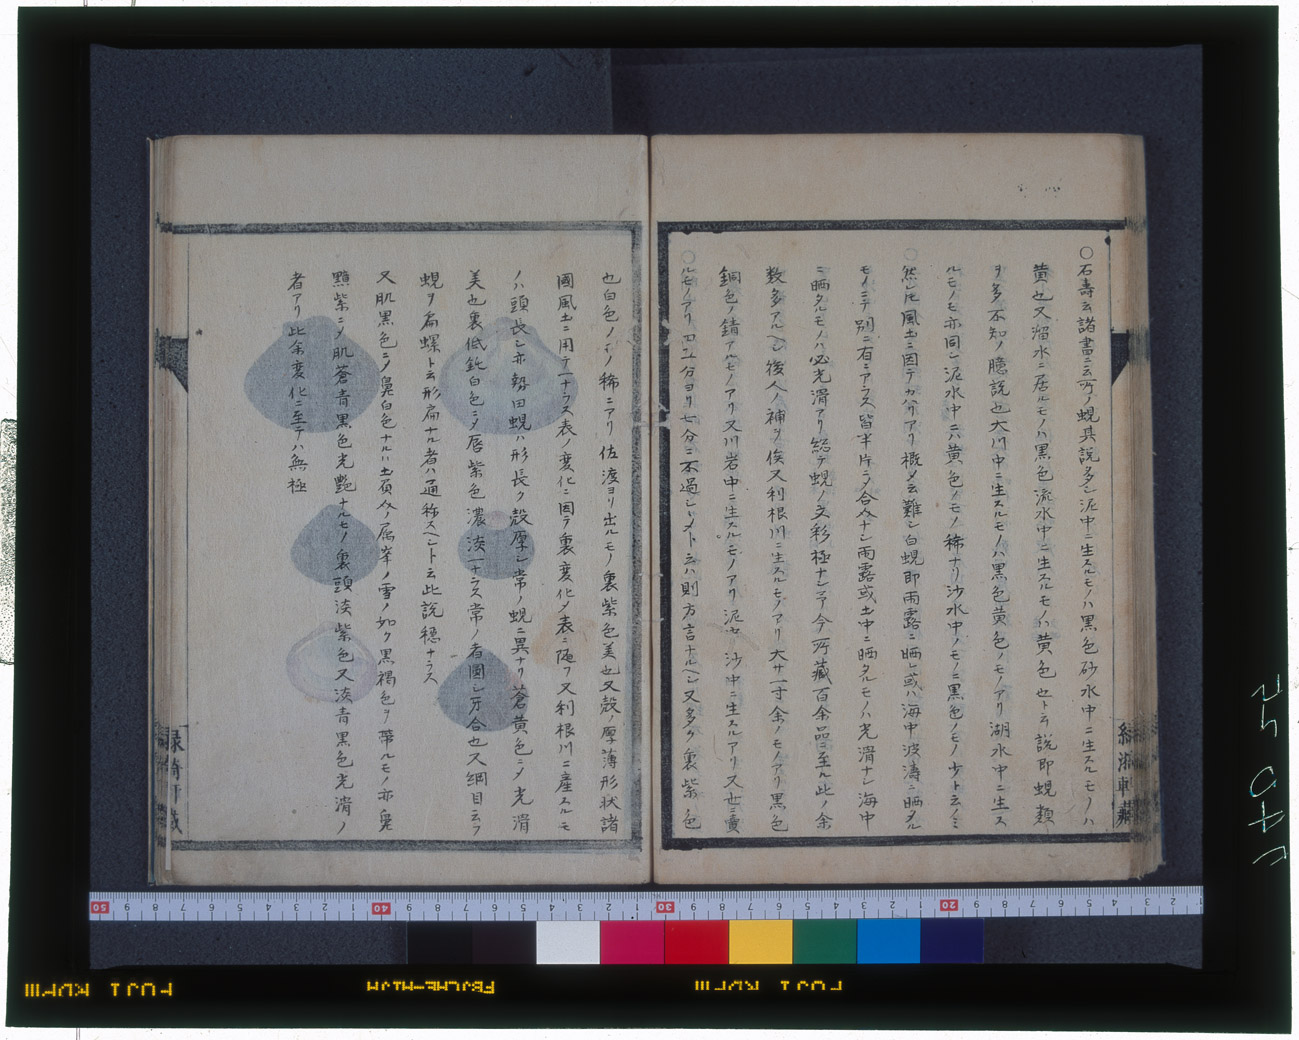 〇石壽云諸書ニ云所ノ蜆其説多シ泥中ニ生スルモノハ黒色砂水中ニ生スルモノハ
黄也又溜水ニ居ルモノハ黒色流水中ニ生スルモノハ黄色也ト云説即蜆類
ヲ多不知ノ臆説也大川中ニ生スルモノハ黒色黄色ノモノアリ湖水中ニ生ス
ルモノモ亦同シ泥水中ニハ黄色ノモノ稀ナリ沙水中ノモノニ黒色ノモノ少ト云ノミ
然レ𪜈風土ニ因テカワリアリ概メ云難シ白蜆即雨露ニ晒シ或ハ海中波濤ニ晒タル
モノニテ別ニ有ニアラス皆半片ニメ合タナシ雨露或土中ニ晒タルモノハ光滑ナシ海中
ニ晒タルモノハ必光滑アリ総テ蜆ノ文彩極ナシ今所藏百余品ニ至ル此ノ余
数多アルヘシ後人ノ補ヲ俟又利根川ニ生スルモノアリ大サ一寸余ノモノアリ黒色
銅色ノ錆アルモノアリ又川岩中ニ生スルモノアリ泥中沙中ニ生スルアリ又世ニ賣
ルモノアリ四五分ヨリ七分ニ不過シ
則方言ナルヘシ又多ク裏紫色
也白色ノモノ稀ニアリ佐渡ヨリ出ルモノ裏紫色美也又殻ノ厚薄形状諸
國風土ニ用テ一ナラス表ノ変化ニ因テ裏変化メ表ニ随フ又利根川ニ産スルモ
ノハ頭長シ亦勢田蜆ハ形長ク殻厚シ常ノ蜆ニ異ナリ蒼黄色ニメ光滑
美也裏低
白色ニメ唇紫色濃淡一ナラス常ノ者圖シ
合也又綱目云フ
蜆ヲ扁螺ト云形扁ナル者ハ通称スヘシト云此説穏ナラス
又肌黒色ニメ鼻白色ナルハ
ノ雪ノ如ク黒褐色ヲ帯ルモノ亦
黯紫ニメ肌蒼青黒色光艶ナルモノ裏頭淡紫色又淡青黒色光滑ノ
者アリ此余変化ニ至テハ無極
50 9 8 7 6 5 4 3 2 1 40 9 8 7 6 5 4 3 2 1 30 9 8 7 6 5 4 3 2 1 20 9 8 7 6 5 4 3 2 1
FUJI
FUJI